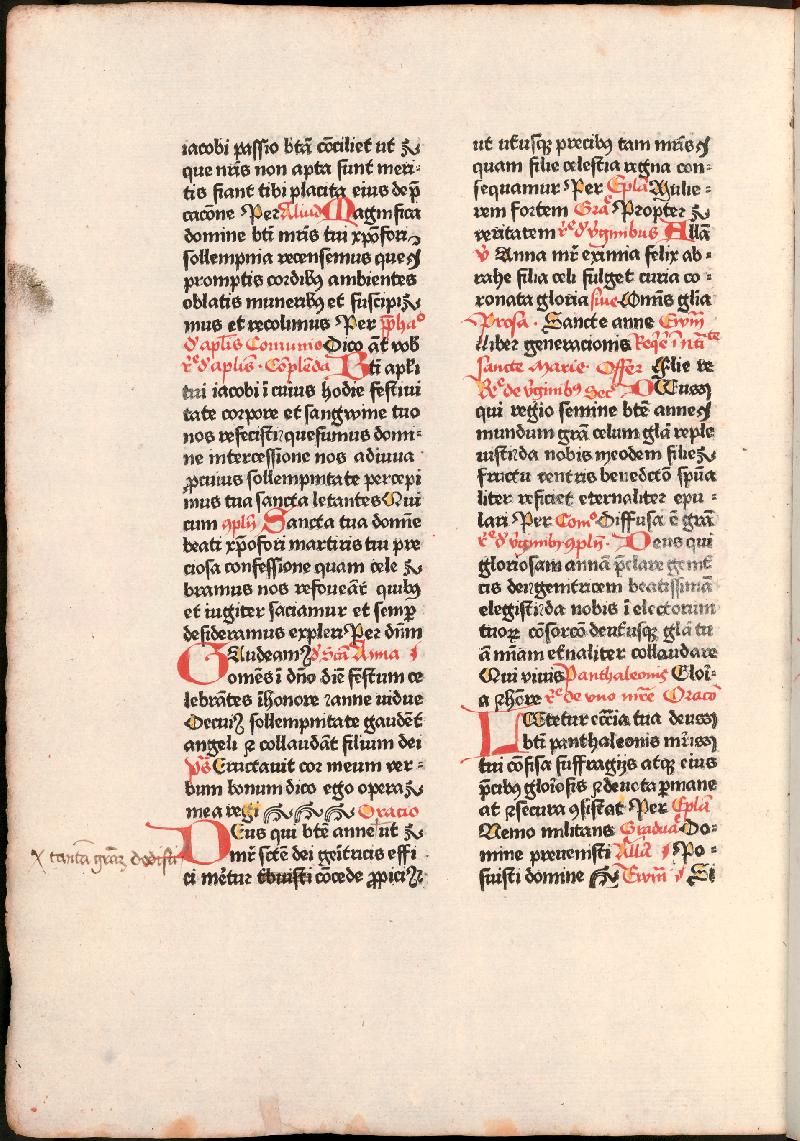 iacobi passio btā cōciliet ut ⁊
que nr̄is non apta sunt meri-
tis fiant tibi placita eius dep̄
cacōne Per Aliud Magnifica
domine bt̄i mr̄is tui xp̄ofori
sollempnia recensemus que
promptis cordibꝰ ambientes
oblatis muneribꝰ et suscipi
mus et recolimus Per p̄phaᵒ
d' apl̄is Comunio Dico āt vob̄
r̄e d' apl̄is · Cōplēda Bt̄i apl̄i
tui iacobi ī cuius hodie festiui
tate corpore et sangwine tuo
nos refecisti quesumus domi-
ne intercessione nos adiuua
ꝓ cuius sollempnitate percepi
mus tua sancta letantes Qui
cum ꝯpln̄ Sancta tua domīe
beati xp̄ofori martiris tui pre
ciosa confessione quam cele
bramus nos refoueāt quibꝰ
et iugiter saciamur et semp̄
desideramus expleri Per dn̄m
GAudeamꝰ d' Scā Anna
omēs ī dn̄o diē festum ce
lebrātes ī honore ꝛanne vidue
De cuiꝰ sollempnitate gaudēt
angeli ⁊ collaudāt filium dei
p̄s Eructauit cor meum ver-
bum bonum dico ego opera
mea regi Oracio
DEus qui btē anne ut
mr̄ sctē dei geīt̄ricis effi
x tantā graꝫ dedisti
ci mēt̄ur tbuisti cōcede ꝓpiciꝰ
ut ut'usqꝫ precibꝰ tam mr̄is
quam filie celestia regna con-
sequamur Per Eplā Mulie-
rem fortem Graᵉ Propter
veritatem r̄e d' v̄ginibus Allā
v̄ Anna mr̄ eximia felix ab-
rahe filia celi fulget curia co-
ronata gloria siue Omīs glīa
Prosa · Sancte anne Ewm̄
Liber generacionis Reqͤ ī nt̄i
sancte Marie · Offer Filie re
R̄e de v̄ginibꝰ Sec DEuss
qui regio semine btē anne
mundum grā celum glā reple
uisti da nobis in eodem filie
fructu ventris benedcō spūa
liter reficiet eternaliter epu-
lari Per Comᵒ Diffusa ē grā
r̄e d' v̄ginibꝰ ꝯpln̄ · Deus qui
gloriosam annā p̄clare genit
cis dei genitricem beatissimā
elegisti da nobis ī electorum
tuoꝝ cōsorcō deut'usqꝫ glā tu
ā mīam et'naliter collaudare
Qui viuis Panthaleonis Eloī-
a ⁊ hōre r̄e de vno mr̄e Oracō
LEtetur ecc̄ia tua deuss
bt̄i panthaleonis mr̄iss
tui cōfisa suffragijs atqꝫ eius
p̄cibꝰ gl'osis ⁊ deuota ꝑmane
at ⁊ secura ꝯsistat Per Eplā
Nemo militans Gradual Do-
mine preuenisti Allā Po-
suisti domine Ewm̄ Si